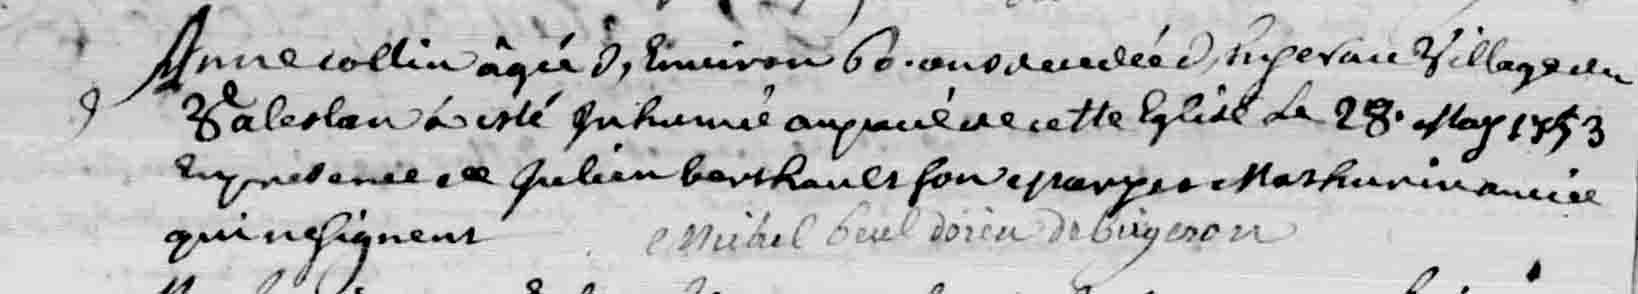 Anne collin âgée d'Environ 60. ans decedée d'hyer au Village du
Valeslan a esté Inhumée au pavé de cette Eglise Le 28. May 1753
En presence de Julien berthault son mary et Mathurin
qui ne signent Michel